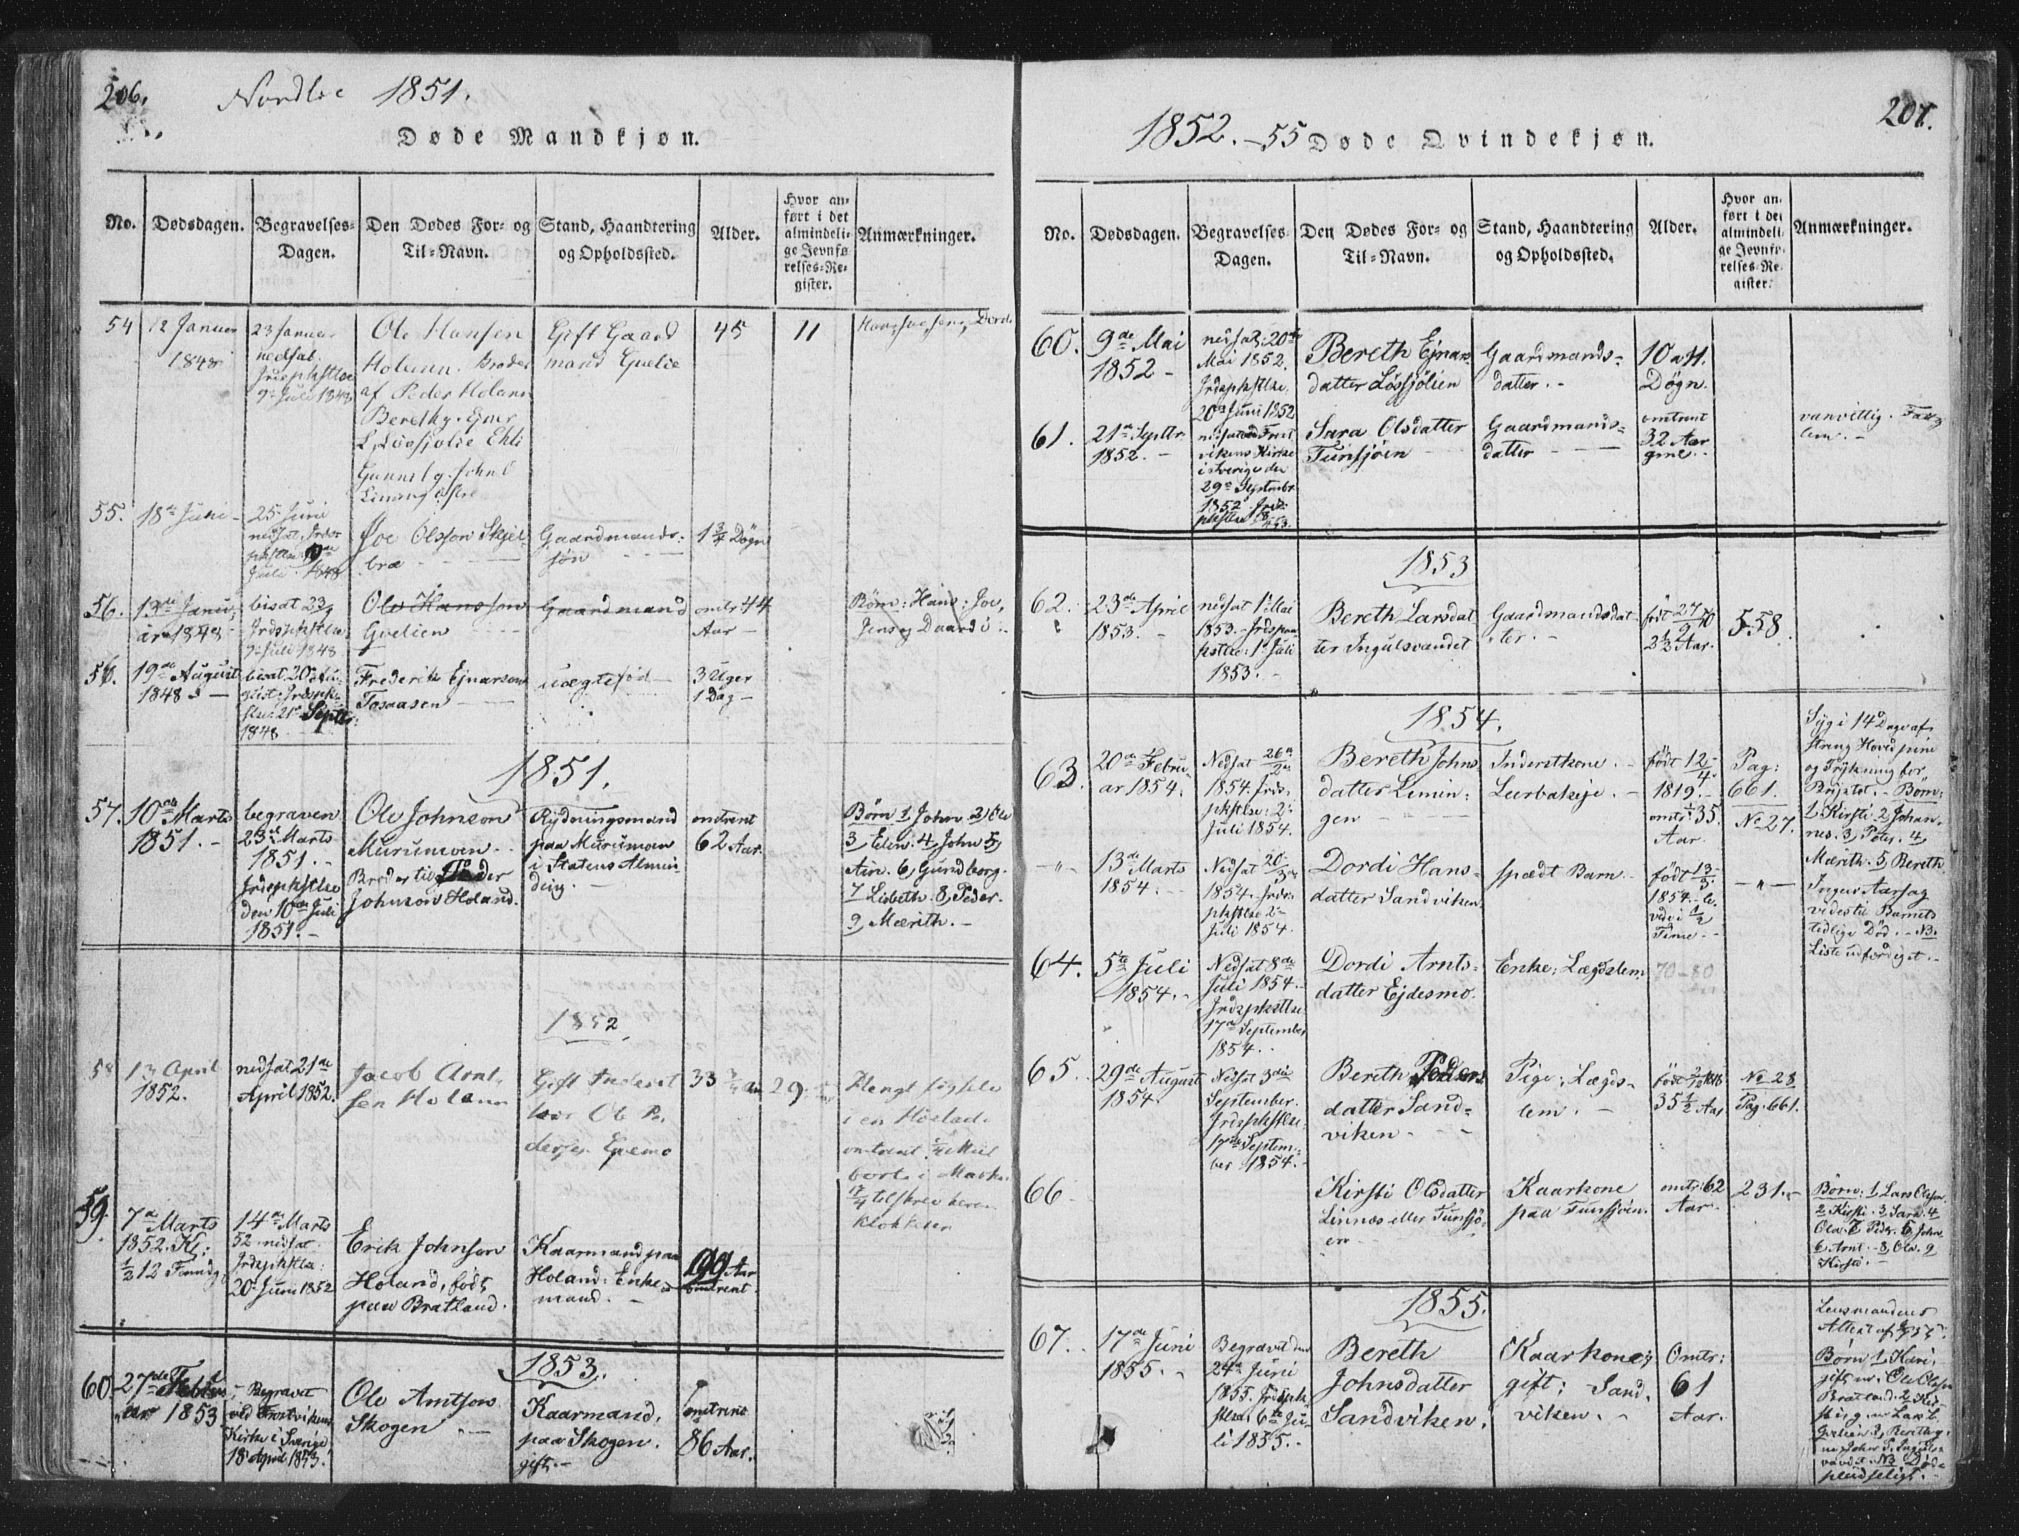 206.
Nordlie 1851.
Døde Mandkjøn.
No.
Dødsdagen.
Begravelses-
Dagen.
Den Dødes For- og
Til-Navn.
Stand, Haandtering
og Opholdssted.
Alder.
Hvor an-
ført i det
almindeli-
ge Jevnfø-
relses-Re-
gister.
Anmærkninger.
54
12 Januar
1848
23 Januar
nedsat.
9. Juli 1848
Ole Hansen
Holann. Broder
af Peder Holann
Gift Gaard
mand Gvelie
45
11
55.
18de Juni
25 Juni
nedsat. Jords
Juli 1848
Joe Olsson Skjel-
bra
Gaardmands-
søn
1 3/4 Døgn
56.
13de Janu-
ar 1848
bisat 23
Jrdspkstlse
9. Juli 1848
Ole Hansson
Gvelien
Gaardmand
omtr. 44
Aar
Børn: Hans: Joe,
Jens og Daardi
56.
19de August
1848
bisat 20 Au-
gust. Jrdspk-
stlse 21 Septbr.
1848
Frederik Ejnarsen
Tosaasen
uægtefød
3 Uger
1 Dag
1851.
57.
10de Marts
1851.
begraven
23de Marts
1851.
Jrdspkstlse
den 10de Juli
1851.
Ole Johnson
Murumoen
Broder til Peder
Johnson Holand.
Rydningsmand
paa Murumoen
i Statens Almin-
ding.
omtrent
62 Aar.
Børn 1, John 2, Ole
3, Elen. 4, John 5,
Ain. 6, Gundborg.
7 Lisbeth. 8, Peder.
9, Mærith.
1852.
58
13 April
1852.
nedsat 21de
April 1852.
Jacob Arnt-
sen Holann
Gift Inderst
hos Ole Pe-
dersen Gvemo
33
29
omtrent 1/2 Miil
borte i Marken
tilskrev herm
Klokker
59.
7de Marts
1852. Kl:
1/2 12 Formdg
14de Marts
52 nedsat
Jrdspkstlse:
20. Juni 1852
Erik Johnson
Holand, født
paa Bratland.
Kaarmand paa
Holand: Enke-
mand.
90 Aar
omtrent.
1853.
60.
27de Febru-
ar 1853
Begravet
ved Frostvikens
Kirke i Sverige
18 April 1853.
Ole Arntson
Skogen
Kaarmand,
paa Skogen.
gift.
omtrent
86 Aar.
207.
1852.-55
Døde Qvindekjøn.
No.
Dødsdagen.
Begravelses-
Dagen.
Den Dødes For- og
Til-Navn.
Stand, Haandtering
og Opholdssted.
Alder.
Hvor an-
ført i det
almindeli-
ge Jevnfø-
relses-Re-
gister.
Anmærkninger.
60.
9de Mai
1852
nedsat: 20de
Mai 1852.
Jrdspkstlse.
20de Juni 1852
Bereth Ejnars
datter Løssjølien
Gaardmands-
datter.
10 a 11.
Døgn.
61.
21de Septbr.
1852.
nedsat ved Frost
vikens Kirke
i Sverige den
29de September
1852
Sara Olsdatter
Tunsjøen
Gaardmands-
datter
omtrent
32 Aar
gml.
vanvittig. Fattig
lem.
1853
62.
23de April
1853.
nedsat 1ste Mai
1853. Jrdspaa
kstlse: 1ste Juli
1853.
Bereth Larsdat
ter Ingulsvandet
Gaardmandsdat-
ter.
558.
1854.
63.
20de Febru-
ar 1854.
Nedsat 26de
1854. Jrds-
pkstlse: 2
Juli 1854.
Bereth Johns
datter Limin-
gen
Inderstkone.
Leerbakeje.
født 12/4
1819.
omtr: 35.
Aar.
Pag:
661.
No 27.
Syg i 14 Dage af
streng Hovedpine
og Trykning for
Brystet. Børn:
1 Kirsti 2 Johan-
nes. 3, Peter. 4,
Mærith. 5, Bereth
Ingen Aarsag
vides til Barnets
tidlige Død. NB.
Liste udfærdiget.
-"-
13de Marts
1854.
Nedsat 20/3
1854. Jrds-
pkstlse 2
Juli 1854.
Dordi Hans-
datter Sandviken
spædt Barn.
født 13/3
1854. le-
ved i 1/2
Time.
-"-
64.
5te Juli
1854.
Nedsat 8de
Juli 1854.
Jrdspkstlse
17de September
1854.
Dordi Arnts-
datter Ejdesmo.
Enke; Lægdslem
70-80
65.
29de August
1854.
Nedsat 3die
September.
Jrdspkstlse.
17de Septem-
ber 1854.
Bereth Peders
datter Sand-
viken
Pige; Lægds-
lem.
35 1/2 Aar
No 28
Pag. 661.
66
Kirsti Olsdatter
Linnæs eller Tunsjø-
en
Kaarkone
paa Tunsjøen.
omtr: 62
Aar.
231.
Børn: 1 Lars Olson
2 Kirsti. 3 Sara. 4
9
Kirsti.
1855.
67.
17de Juni
1855.
Begravet den
24de Juni
1855. Jrdspk-
stlse. 6te Ju-
li 1855.
Bereth
Johnsdatter
Sandviken.
Kaarkone;
gift; Sand-
viken.
Omtr:
61
Aar.
Lensmandens
Attest af
Børn 1, Kari,
gift m: Ole Olson
Bratland. 2, Kir-
Gvelien 3, Bereth g.
m. John P. Inguls-
vandet. NB Døde
pludseligt.